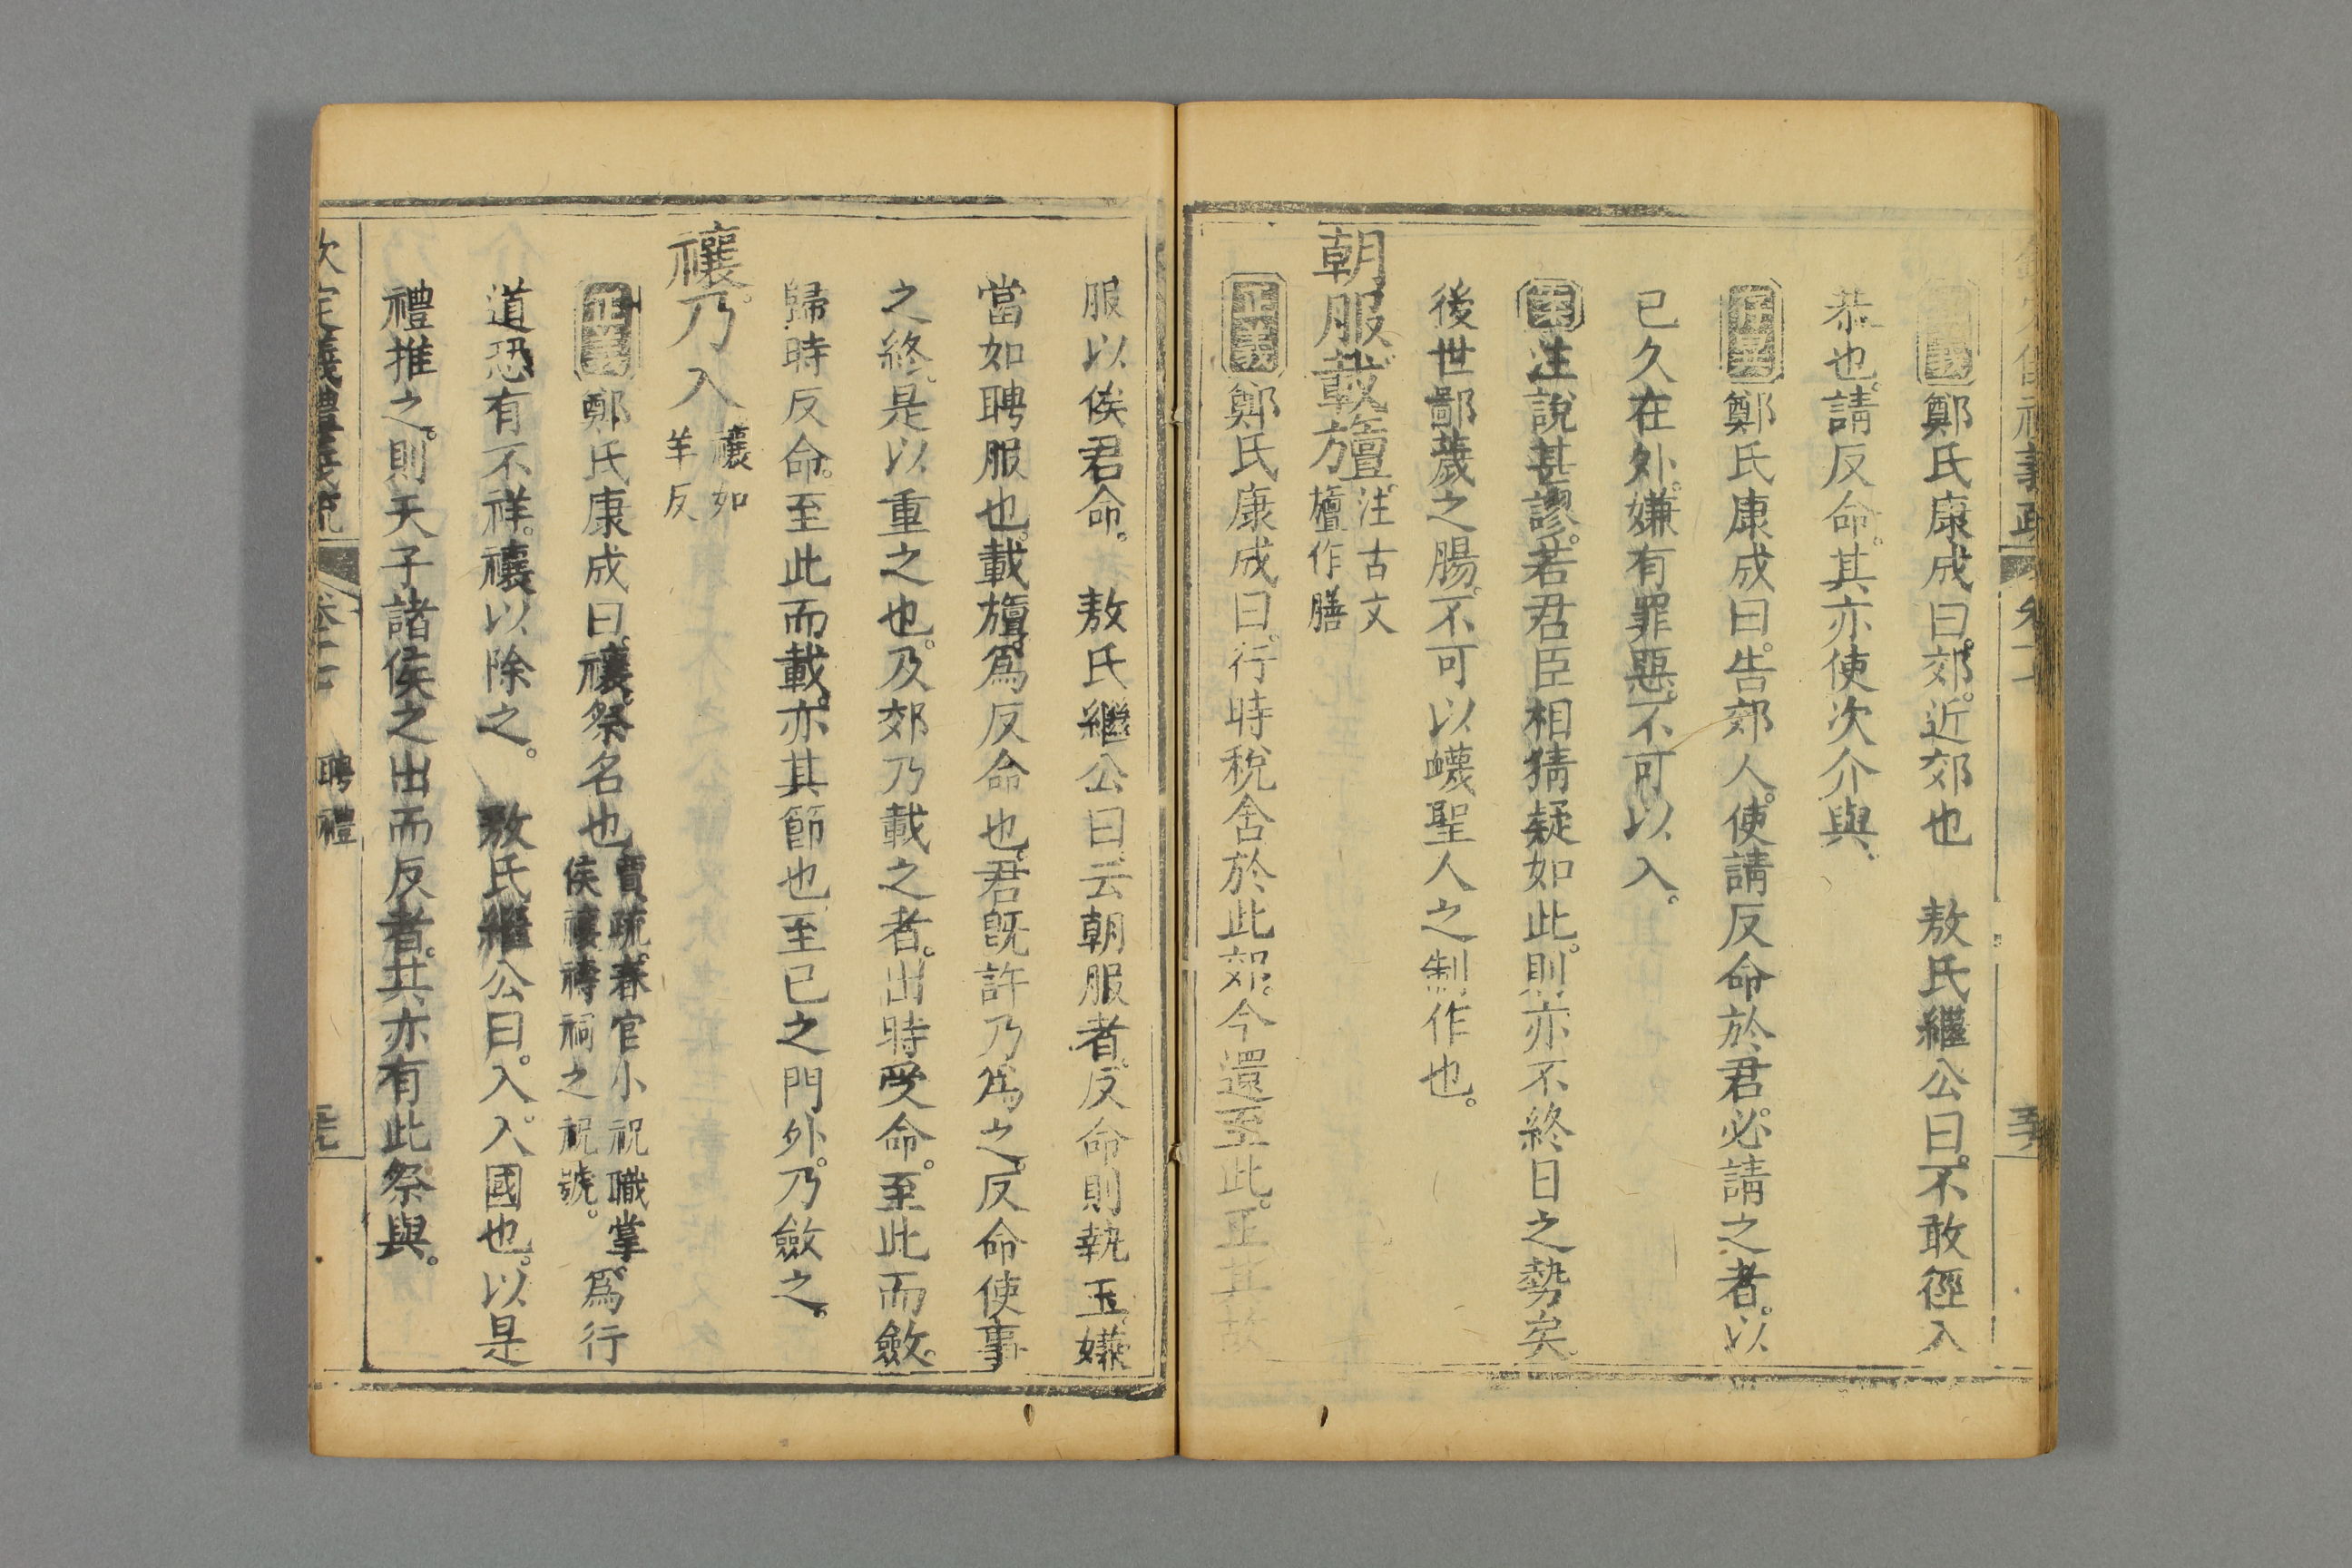 鄭氏康成曰。郊。近郊也　敖氏繼公曰。不敢徑入
恭也。請反命。其亦使次介與。
正義鄭氏康成曰。告郊人。使請反命於君。必請之者。以
已久在外。嫌有罪惡。不可以入。
案注說甚謬。若君臣相猜疑如此。則亦不終日之勢矣。
後世鄙薉之腸。不可以衊聖人之制作也。
朝服載旜。注古文旜作膳
正義鄭氏康成曰。行時稅舍於此郊。今還至此。正其故
服以俟君命。　敖氏繼公曰。云朝服者。反命則執玉。嫌
當如聘服也。載旜。爲反命也。君旣許乃爲之。反命使事
之終。是以重之也。及郊乃載之者。出時受命。至此而斂。
歸時反命。至此而載。亦其節也。至已之門外。乃斂之。
禳。乃入禳如羊反
正義鄭氏康成曰。禳。祭名也。賈疏。春官小祝職掌侯禳禱祠之祝號。爲行
道恐有不祥。禳以除之。　敖氏繼公曰。入。入國也。以是
禮推之。則天子諸侯之出而反者。其亦有此祭與。
欽定義禮義疏　卷十七　聘禮